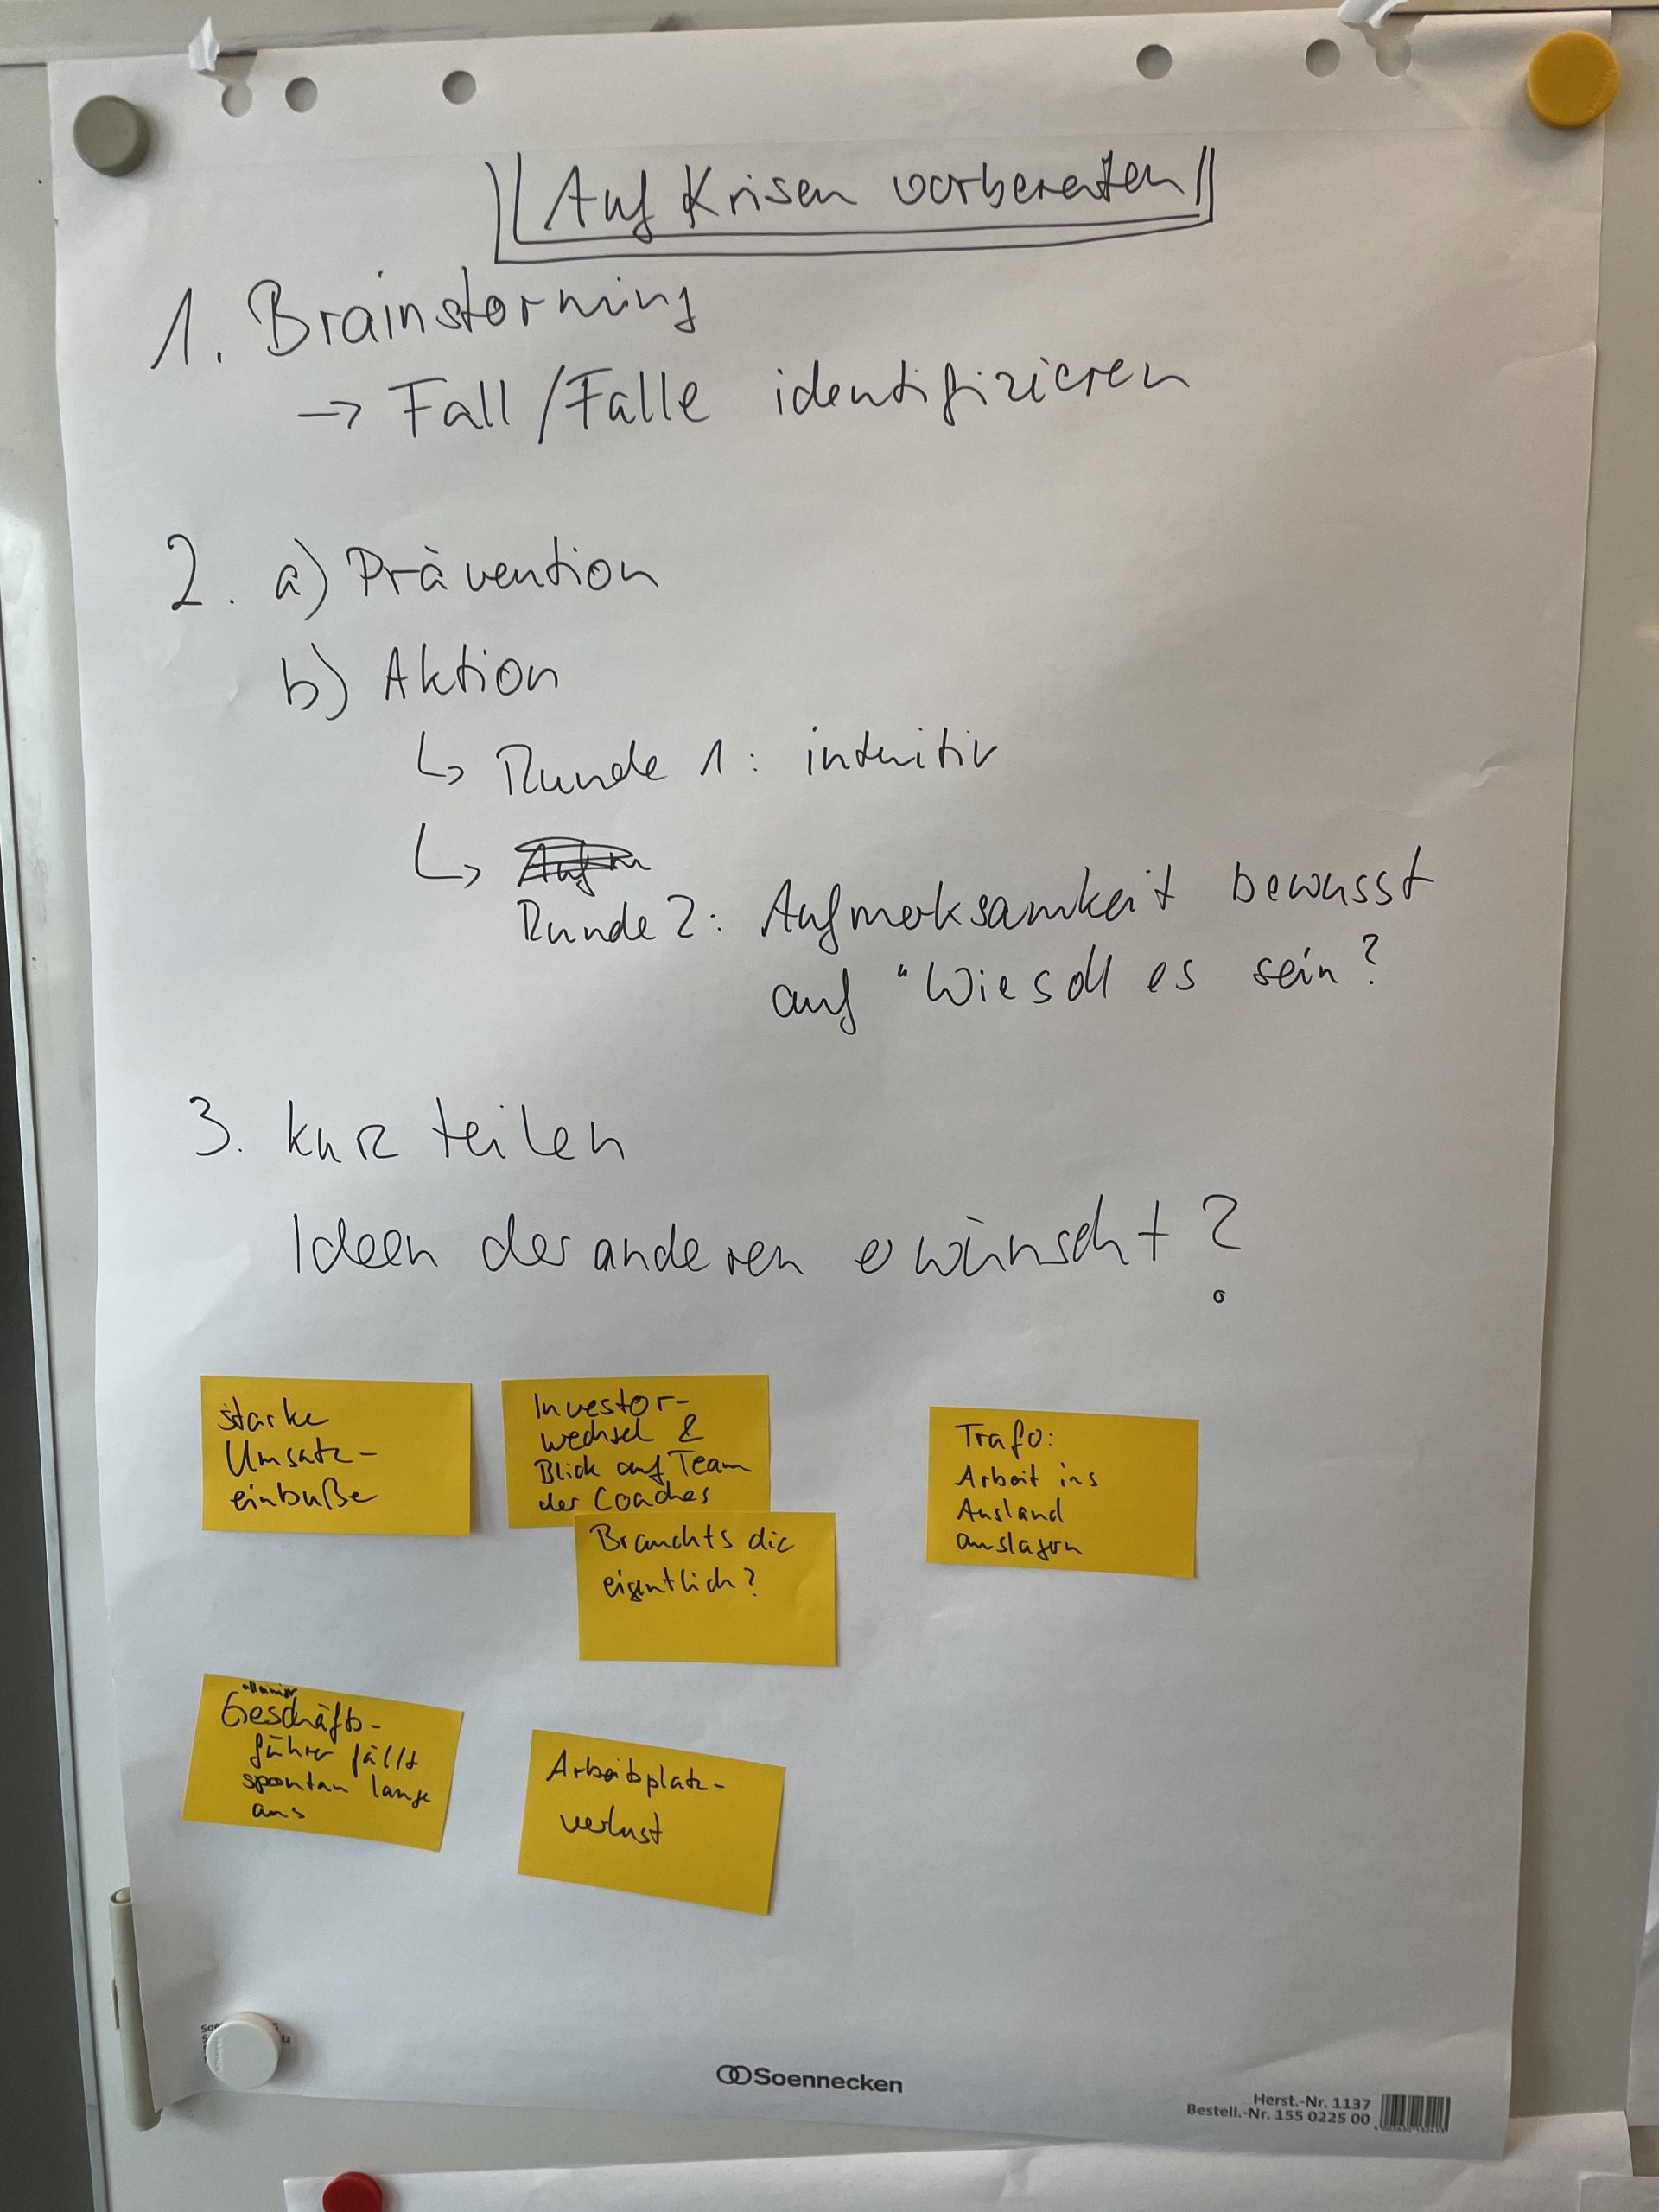 Auf Krisen vorbereiten
1. Brainstorming
→ Fall/Fälle identifizieren
2. a) Prävention
b) Aktion
↳ Runde 1: intuitiv
↳
Runde 2: Aufmerksamkeit bewusst
auf "Wie soll es sein?
3. kurz teilen
Ideen der anderen erwünscht?
starke
Umsatz-
einbuße
Investor-
wechsel &
Blick auf Team
der Coaches
Brauchts die
eigentlich?
Trafo:
Arbeit ins
Ausland
auslagern
alleiniger
Geschäfts-
führer fällt
spontan lange
aus
Arbeitsplatz-
verlust
Soennecken
Herst.-Nr. 1137
Bestell.-Nr. 155 0225 00